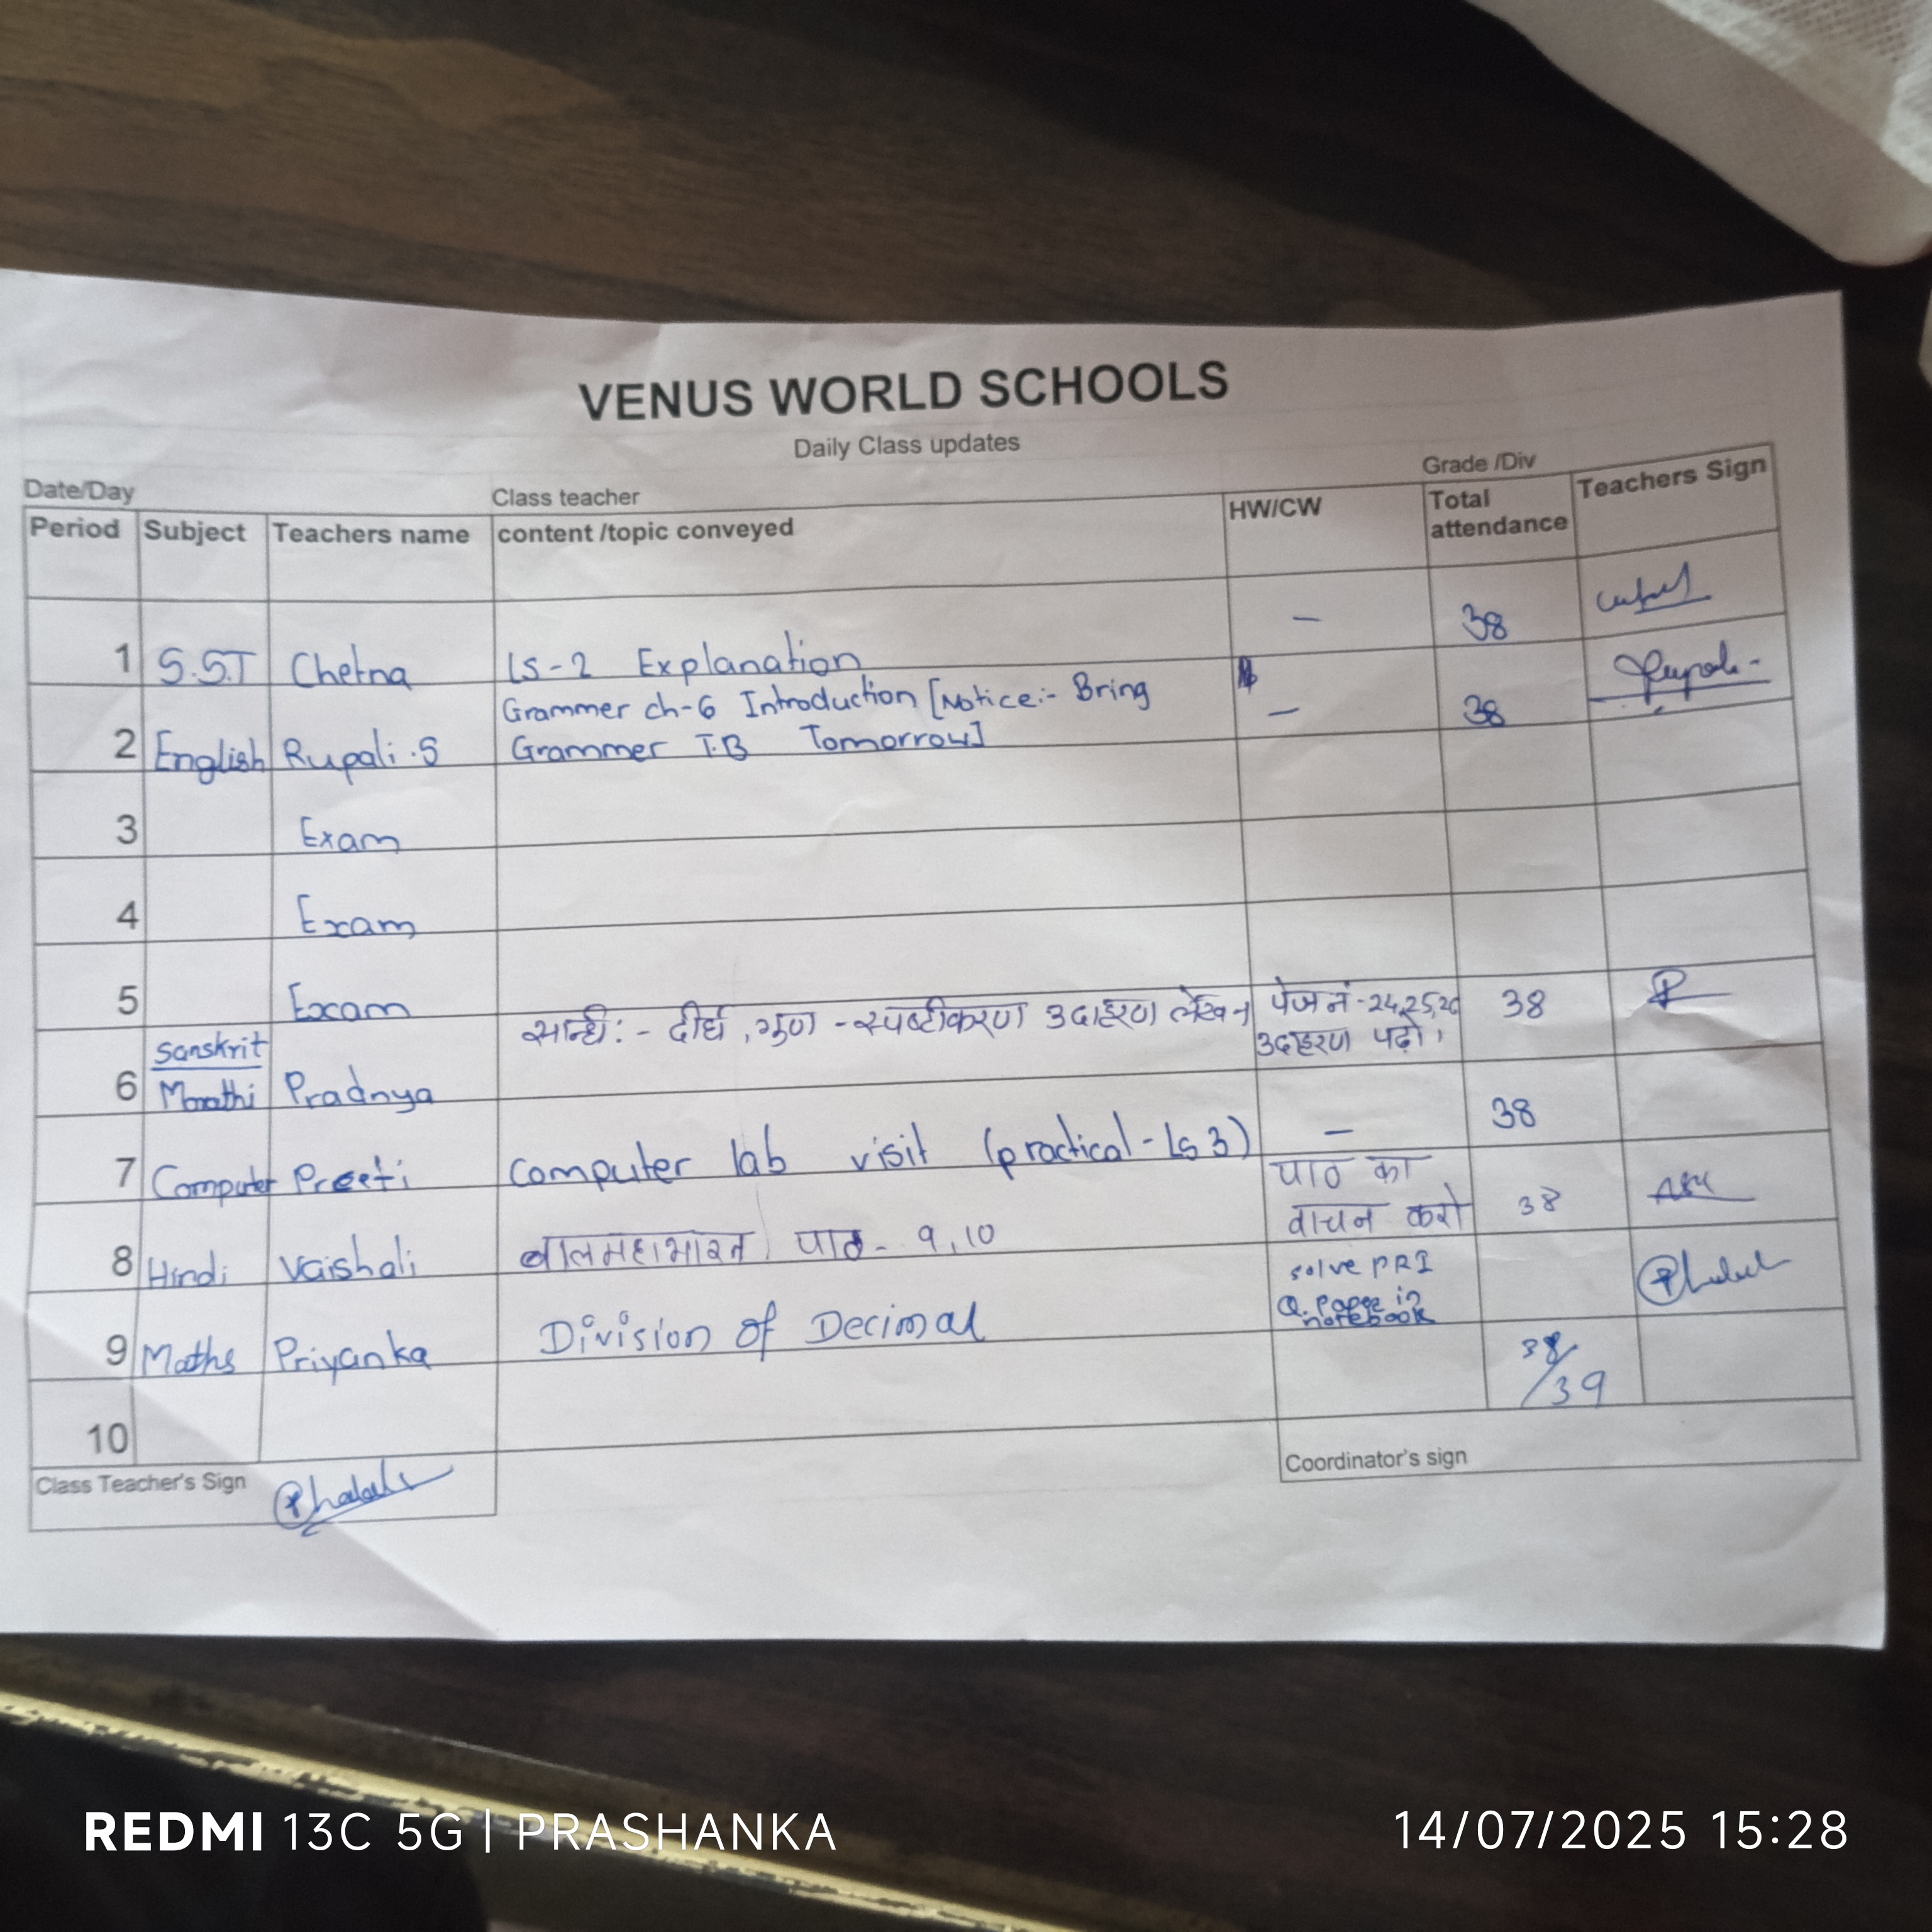 VENUS WORLD SCHOOLS
Daily Class updates
Date/Day Class teacher Grade /Div
Period Subject Teachers name content /topic conveyed HW/CW Total attendance Teachers Sign
1 S.S.T Chetna Ls-2 Explanation - 38
Grammer ch-6 Introduction [Notice:- Bring
2 English Rupali.S Grammer T.B Tomorrow] - 38
3 Exam
4 Exam
5 Exam
सान्धी:- दीर्घ, गुण -स्पष्टीकरण उदाहरण लेखन पेज नं-24,25,26 38
Sanskrit उदाहरण पढ़ो।
6 Marathi Pradnya
7 Computer Preeti Computer lab visit (practical-Ls 3) - 38
पाठ का
8 Hindi Vaishali बालमहाभारत पाठ- 9,10 वाचन करो 38
solve PRI
Q. Paper in
notebook
9 Maths Priyanka Division of Decimal
38/39
10
Class Teacher's Sign Coordinator's sign
REDMI 13C 5G | PRASHANKA 14/07/2025 15:28